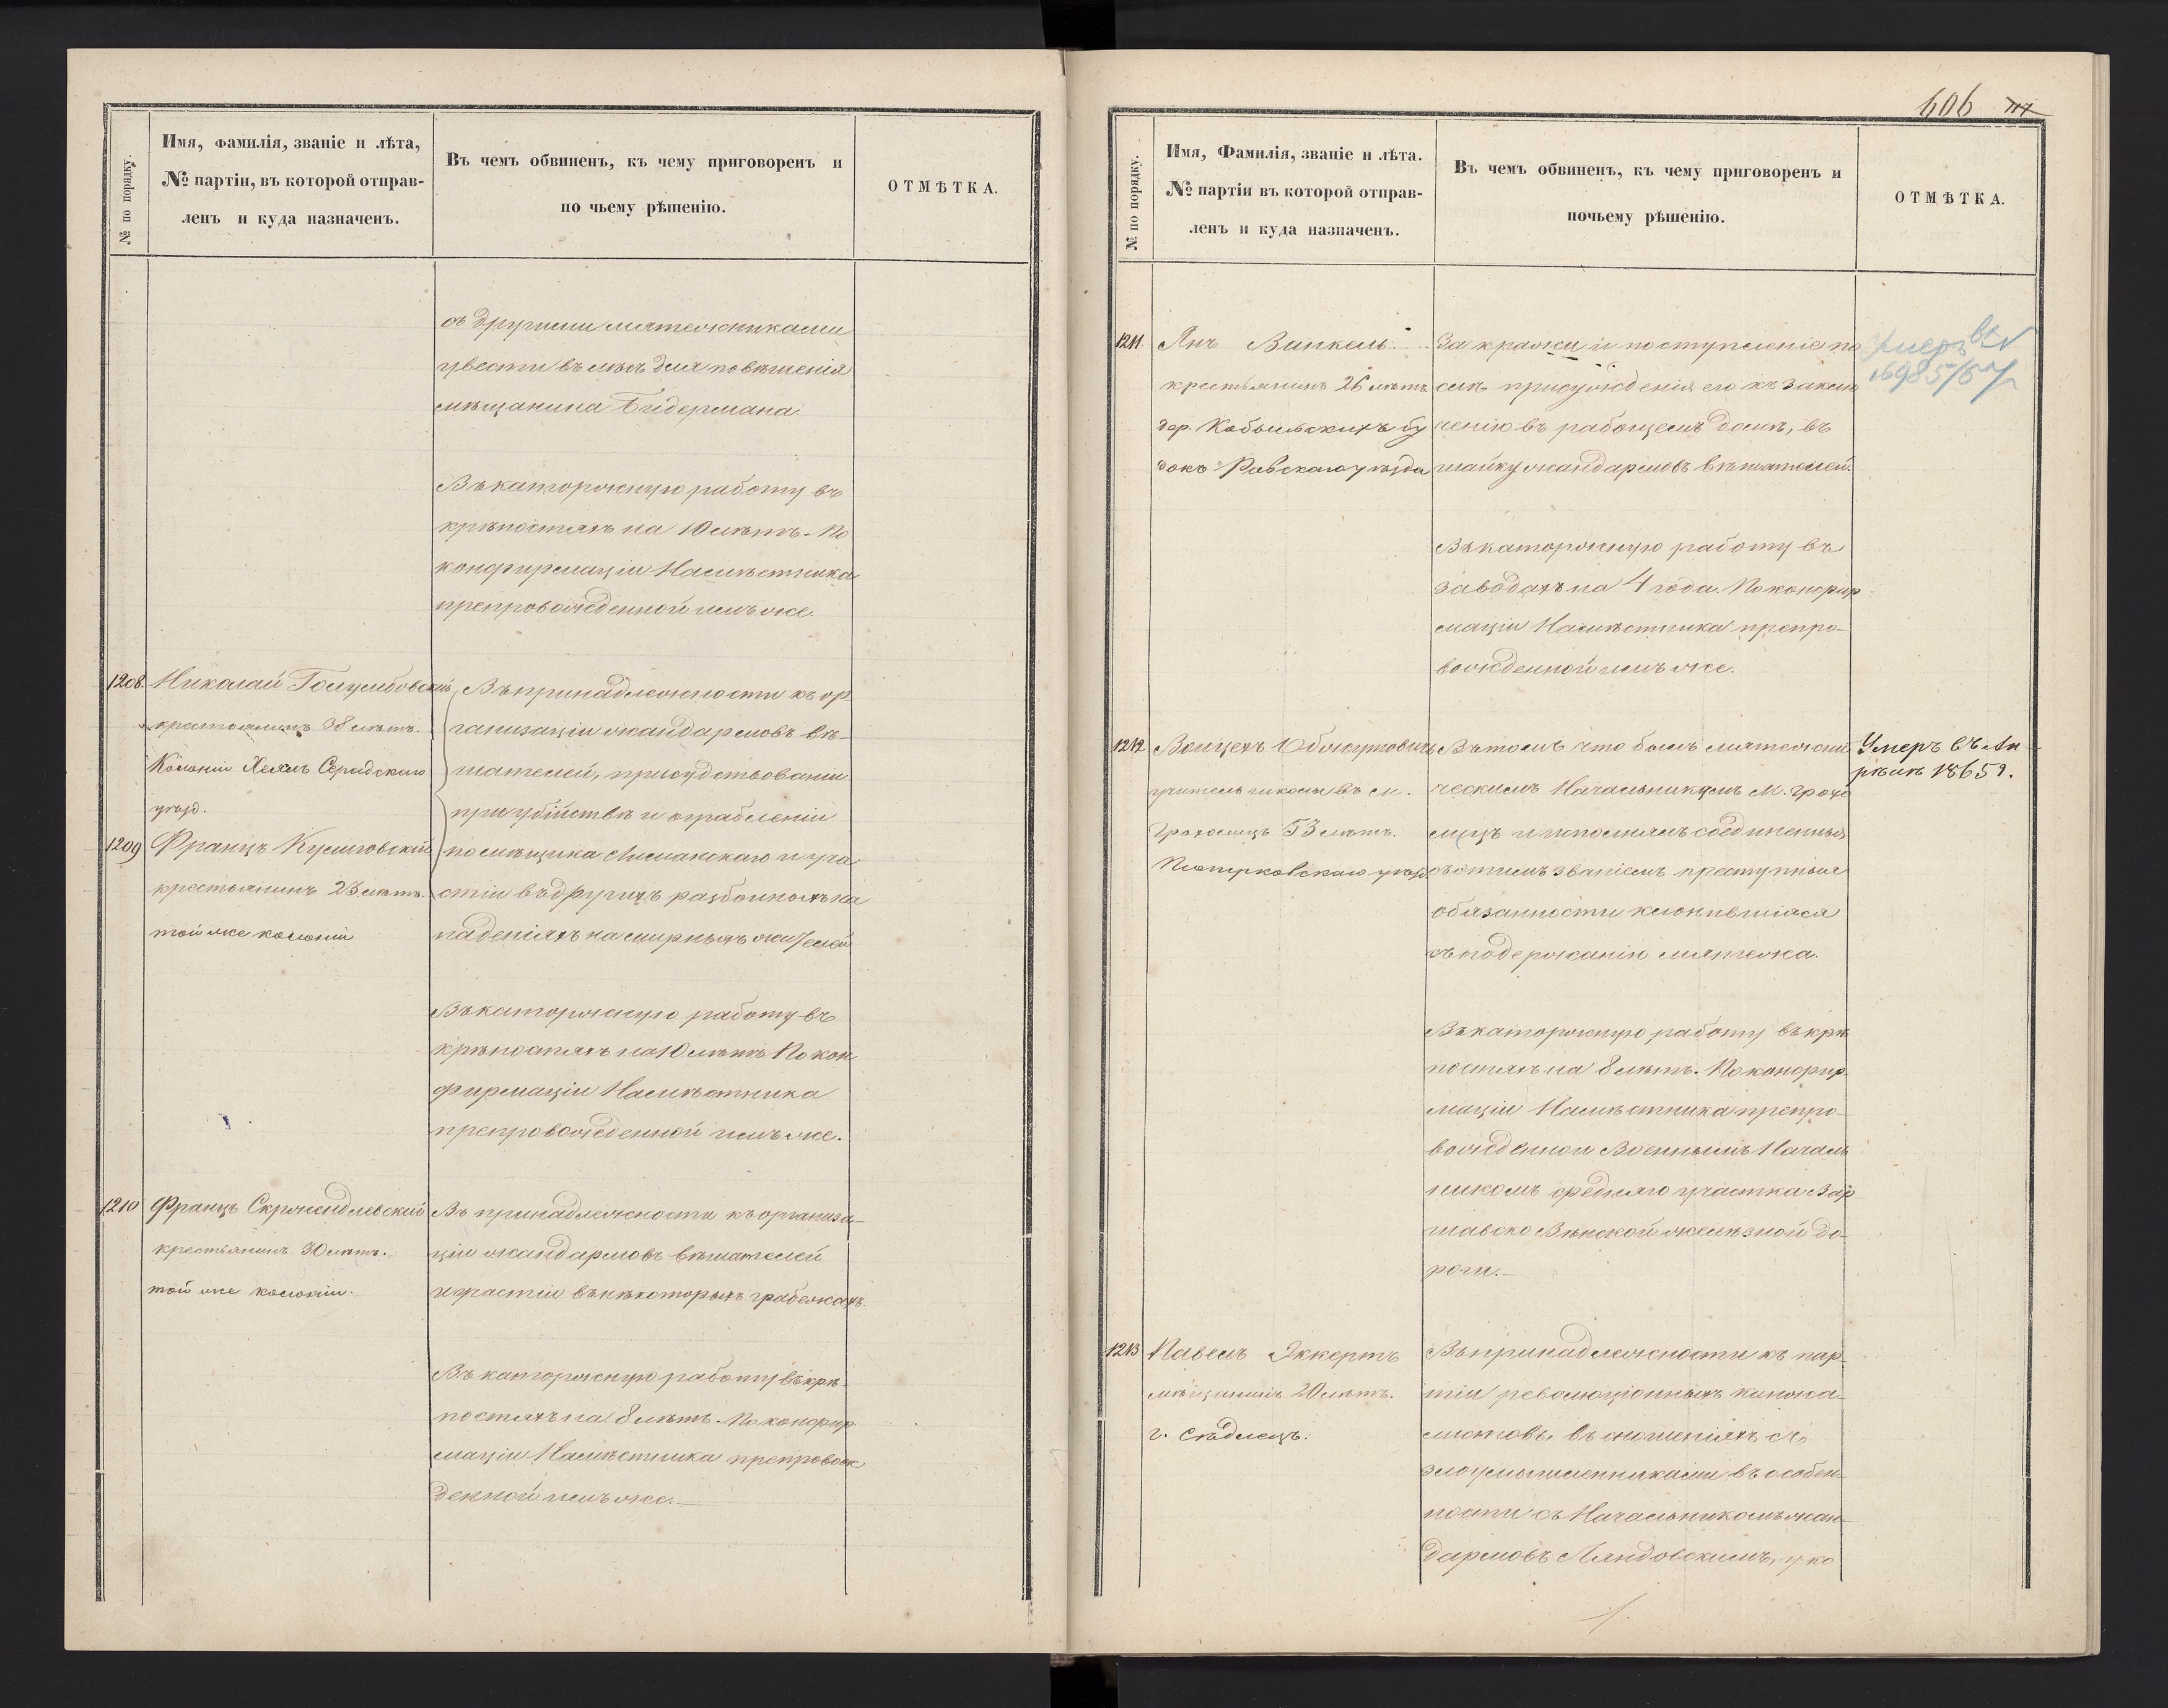 № по порядку.
Имя, фамилія, званіе и лѣта,
№ партіи, въ которой отправ-
ленъ и куда назначенъ.
Въ чемъ обвиненъ, къ чему приговоренъ и
по чьему рѣшенію.
ОТМѢТКА.
съ другими мятежниками
увести въ лѣсъ для повѣшенія
мѣщанина Бидермана.
Въ каторжную работу въ
крѣпостяхъ на 10 лѣтъ. По
конфирмаціи Намѣстника
препровожденной имъ же.
1208. Николай Голумбовскій
крестьянинъ 38 лѣтъ.
Колоніи Хелмъ Серадскаго
уѣзд.
1209 Францъ Кушговскій
крестьянинъ 23 лѣтъ.
той же колоніи
Въ принадлежности къ ор
ганизаціи жандармовъ вѣ-
шателей, присудствованіи
при убійствѣ и ограбленіи
помѣщика Лимакскаго и уча
стіи въ другихъ разбойныхъ на
паденіяхъ на мирныхъ жителей
Въ каторжную работу въ
крѣпостяхъ на 10 лѣтъ. По кон
фирмаціи Намѣстника
препровожденной имъ же.
1210 Францъ Скржендлевскій
крестьянинъ 30 лѣтъ.
той же колоніи.
Въ принадлежности къ организа-
ціи жандармовъ вѣшателей
и участіи въ нѣкоторыхъ грабежахъ.
Въ каторжную работу въ крѣ-
постяхъ на 8 лѣтъ. По конфир
маціи Намѣстника препровож
денной имъ же.
606
№ по порядку.
Имя, Фамилія, званіе и лѣта.
№ партіи въ которой отправ-
ленъ и куда назначенъ.
Въ чемъ обвиненъ, къ чему приговоренъ и
почьему рѣшенію.
ОТМѢТКА.
1211. Янъ Винкель
крестьянинъ 26 лѣтъ
дер. Кобыльскихъ бу
докъ Равскаго уѣзда
За кражи и поступленіе по
слѣ присужденія его къ заклю
ченію въ рабочемъ домѣ, въ
шайку жандармовъ вѣшателей.
Въ каторжную работу въ
заводахъ на 4 года. По конфир
маціи Намѣстника препро-
вожденной имъ же.
Умеръ
1212 Войцехъ Облкутовичъ
учитель школы въ м.
Грохолицъ 53 лѣтъ.
Піотрковскаго уѣзд.
Въ томъ что былъ мятежни
ческимъ Начальникомъ М. Грохо
лицъ и исполнялъ соединенныя
съ этимъ званіемъ преступныя
обязанности клонившіяся
къ подержанію мятежа.
Въ каторжную работу въ крѣ
постяхъ на 8 лѣтъ. По конфир-
маціи Намѣстника препро-
вожденной Военнымъ Началь
никомъ средняго участка Вар
шавско Вѣнской желѣзной до-
роги.
Умеръ въ Ап-
рѣлѣ 1865 г.
1213 Павелъ Эккертъ
мѣщанинъ 20 лѣтъ.
г. Сѣдлецъ.
Въ принадлежности къ пар-
тіи революціонныхъ кинжа-
листовъ, въ сношеніяхъ съ
злоумышленниками въ особен-
ности съ Начальникомъ жан-
дармовъ Ляндовскимъ, у ко